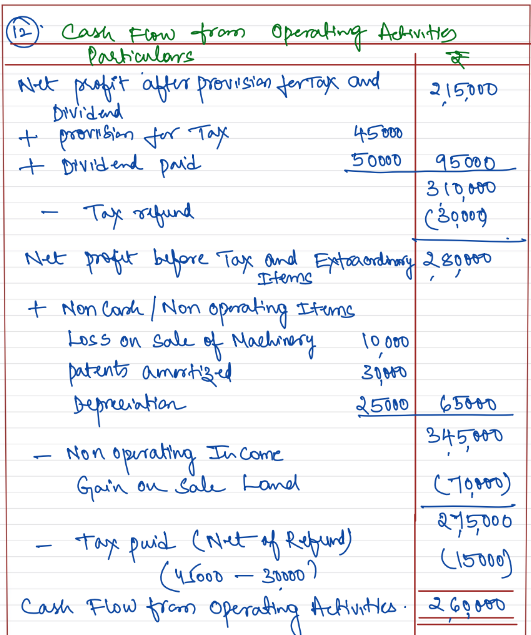 (12). Cash Flow from Operating Activities
Particulars ₹
Net profit after provision for Tax and 2,15,000
Dividend
+ provision for Tax 45000
+ Dividend paid 50000 95000
310,000
- Tax refund (30,000)
Net profit before Tax and Extraordinary 2,80,000
Items
+ Non Cash / Non operating Items
Loss on sale of Machinery 10,000
patents amortized 30,000
Depreciation 25000 65000
345,000
- Non operating Income
Gain on Sale Land (70,000)
275,000
- Tax paid (Net of Refund) (15000)
(45000 - 30000)
Cash Flow from Operating Activities. 2,60,000